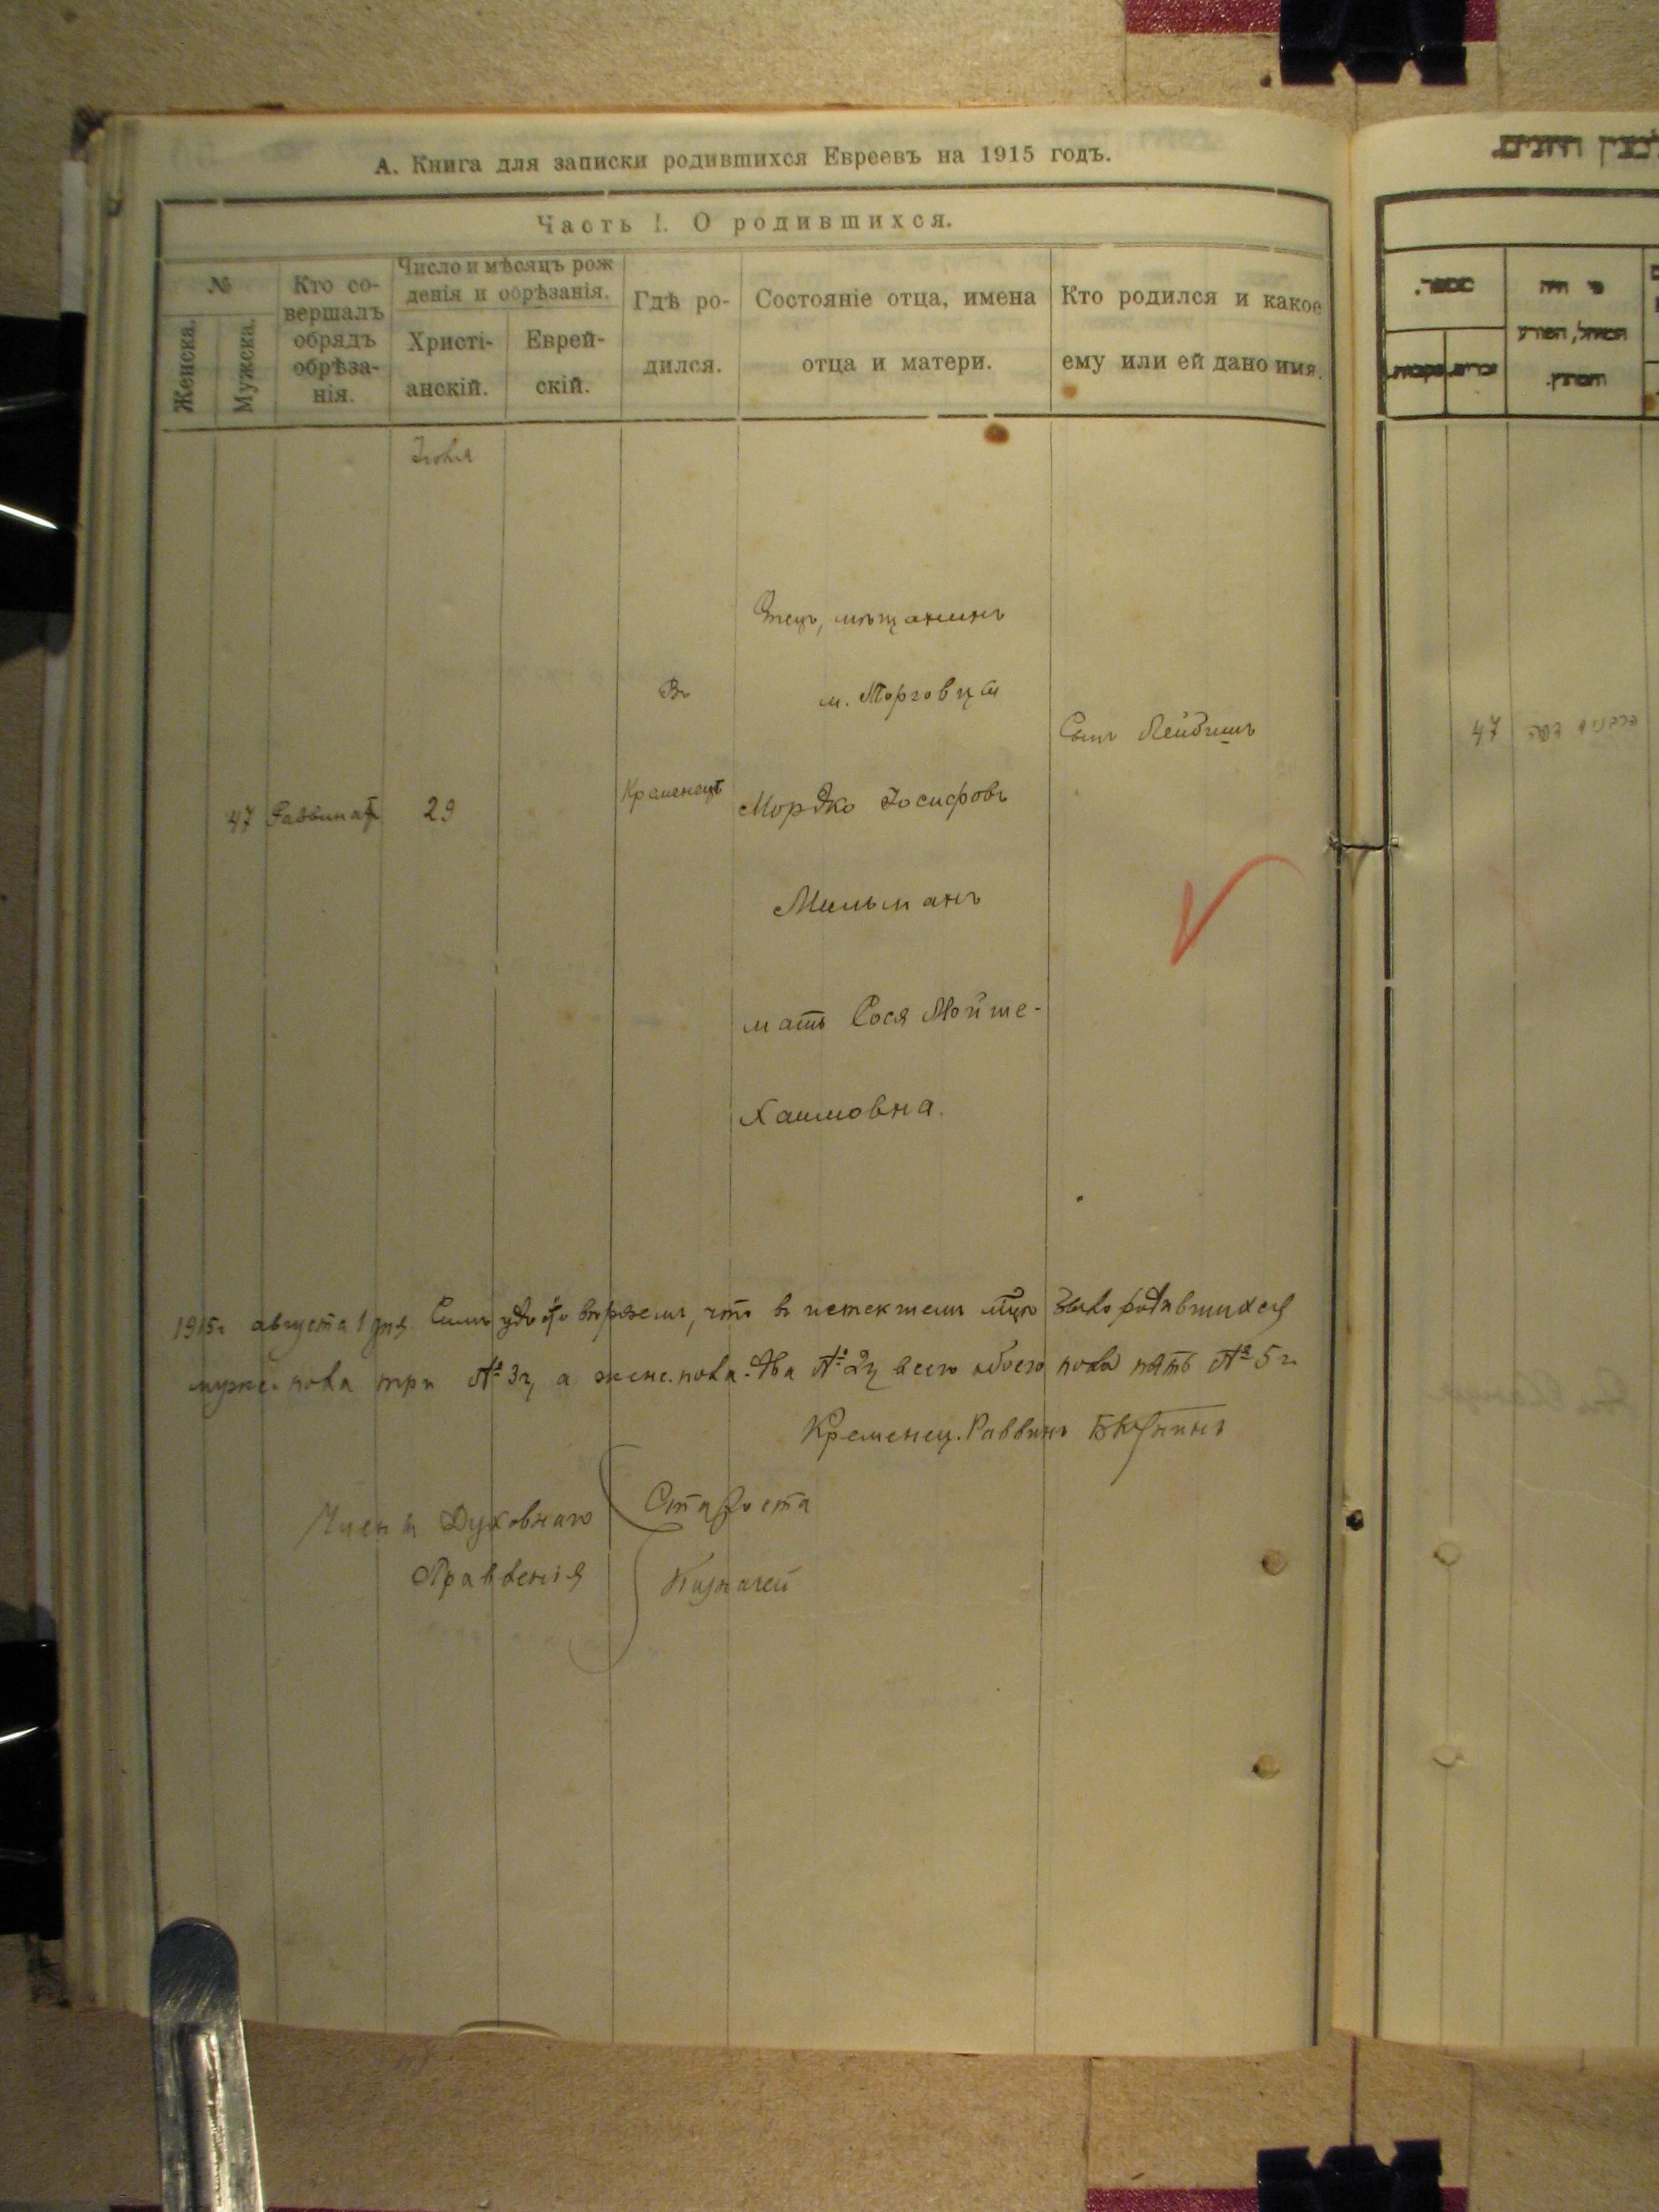 А. Книга для записки родившихся Евреевъ на 1915 годъ.
Часть I. О родившихся.
№
Женска.
Мужска.
Кто со-
вершалъ
обрядъ
обрѣза-
нія.
Число и мѣсяцъ рож
денія и обрѣзанія.
Христі-
анскій.
Еврей-
скій.
Гдѣ ро-
дился.
Состояніе отца, имена
отца и матери.
Кто родился и какое
ему или ей дано имя.
Іюля
47
29
Въ
Кременцѣ
Отецъ, мѣщанинъ
м. Торговица
Мордко Іосифовъ
Мильманъ
мать Сося Мойше-
Хаимовна.
Сынъ Лейбишъ
1915 г. августа 1 дня Симъ что въ истекшемъ родившихся
мужс. пола три № 3, а женс. пола два № 2, всего обоего пола пять № 5
Кременец. Раввинъ
Члены Духовнаго
Правленія
Староста
Казначей
מספר.
מי היה
זכרים.
נקבות.
47